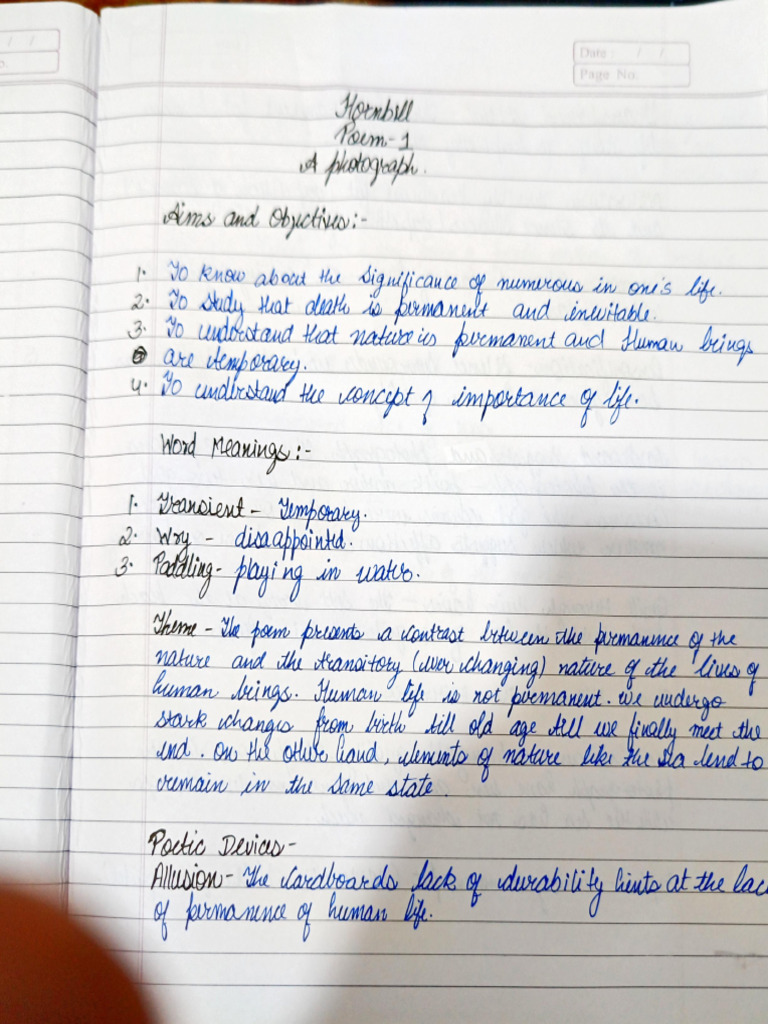 Date : / /
Page No:
Hornbill
Poem-1
A photograph.
Aims and Objectives:-
1. To know about the significance of numerous in one's life.
2. To study that death is permanent and inevitable.
3. To understand that nature is permanent and Human beings
are temporary.
4. To understand the concept of importance of life.
Word Meanings:-
1. Transient - Temporary.
2. Wry - disaappointed.
3. Paddling - playing in water.
Theme - The poem presents a contrast between the permanence of the
nature and the transitory (ever changing) nature of the lives of
human beings. Human life is not permanent. We undergo
stark changes from birth till old age till we finally meet the
end. On the other hand, elements of nature like the sea tend to
remain in the same state.
Poetic Devices -
Allusion - The cardboards lack of durability hints at the lac
of permanence of human life.